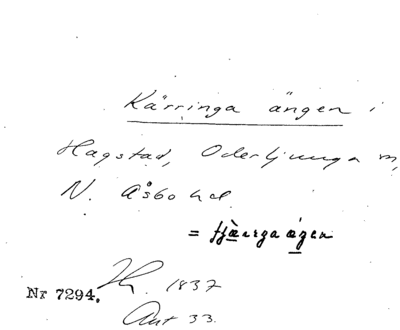 Kärringa ängen i
Hagstad, Oderljunga m,
N. Åsbo hd.
Nr 7294.
1837
Ant 33.